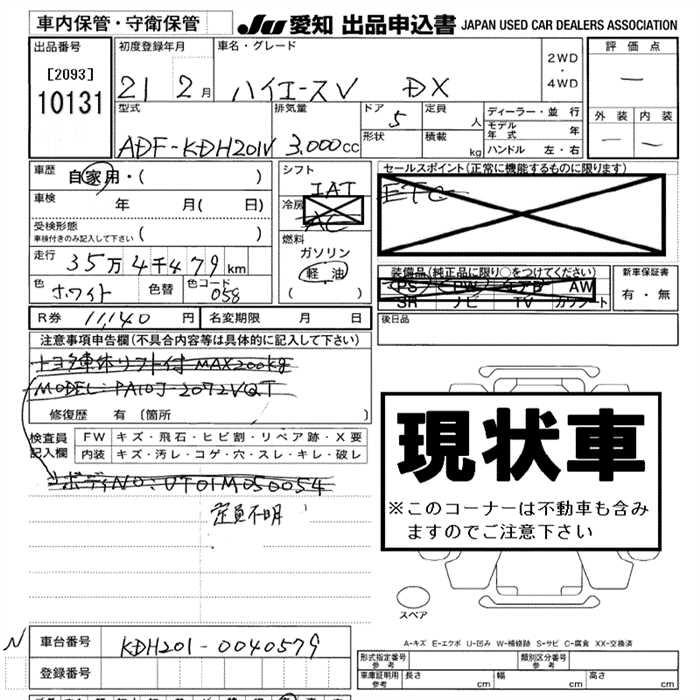 車内保管・守衛保管
JU 愛知 出品申込書 JAPAN USED CAR DEALERS ASSOCIATION
出品番号
[2093]
10131
初度登録年月
21 2月
車名・グレード
ハイエースV DX
2WD
・
4WD
評価点
—
外装 内装
— —
型式
ADF-KDH201V
排気量
3,000cc
ドア
5
形状
定員
人
積載
kg
ディーラー・並行
モデル年式 年
ハンドル 左・右
車歴 自家用・( )
車検 年 月( 日)
受検形態
車検付きのみ記入して下さい ( )
走行 35万4千479km
色 ホワイト 色替 色コード 058
シフト
IAT
冷房
AC
燃料
ガソリン
軽油
( )
セールスポイント(正常に機能するものに限ります)
ETC
装備品(純正品に限り○をつけてください)
PS PW エアB AW
SR ナビ TV カワシート
新車保証書
有・無
R券 11,140円 名変期限 月 日
後日品
注意事項申告欄(不具合内容等は具体的に記入して下さい)
トヨタ車体リフト付 MAX200kg
MODEL:PA10J-2072VQT
修復歴 有 〔箇所
検査員記入欄
FW キズ・飛石・ヒビ割・リペア跡・X要
内装 キズ・汚レ・コゲ・穴・スレ・キレ・破レ
ボディNO:UT01M050054
定員不明
現状車
※このコーナーは不動車も含み
ますのでご注意下さい
スペア
A-キズ E-エクボ U-凹み W-補修跡 S-サビ C-腐食 XX-交換済
N 車台番号 KDH201-0040579
登録番号
形式指定番号 参考 類別区分番号 参考
車庫証明用 参考 長さ cm 幅 cm 高さ cm